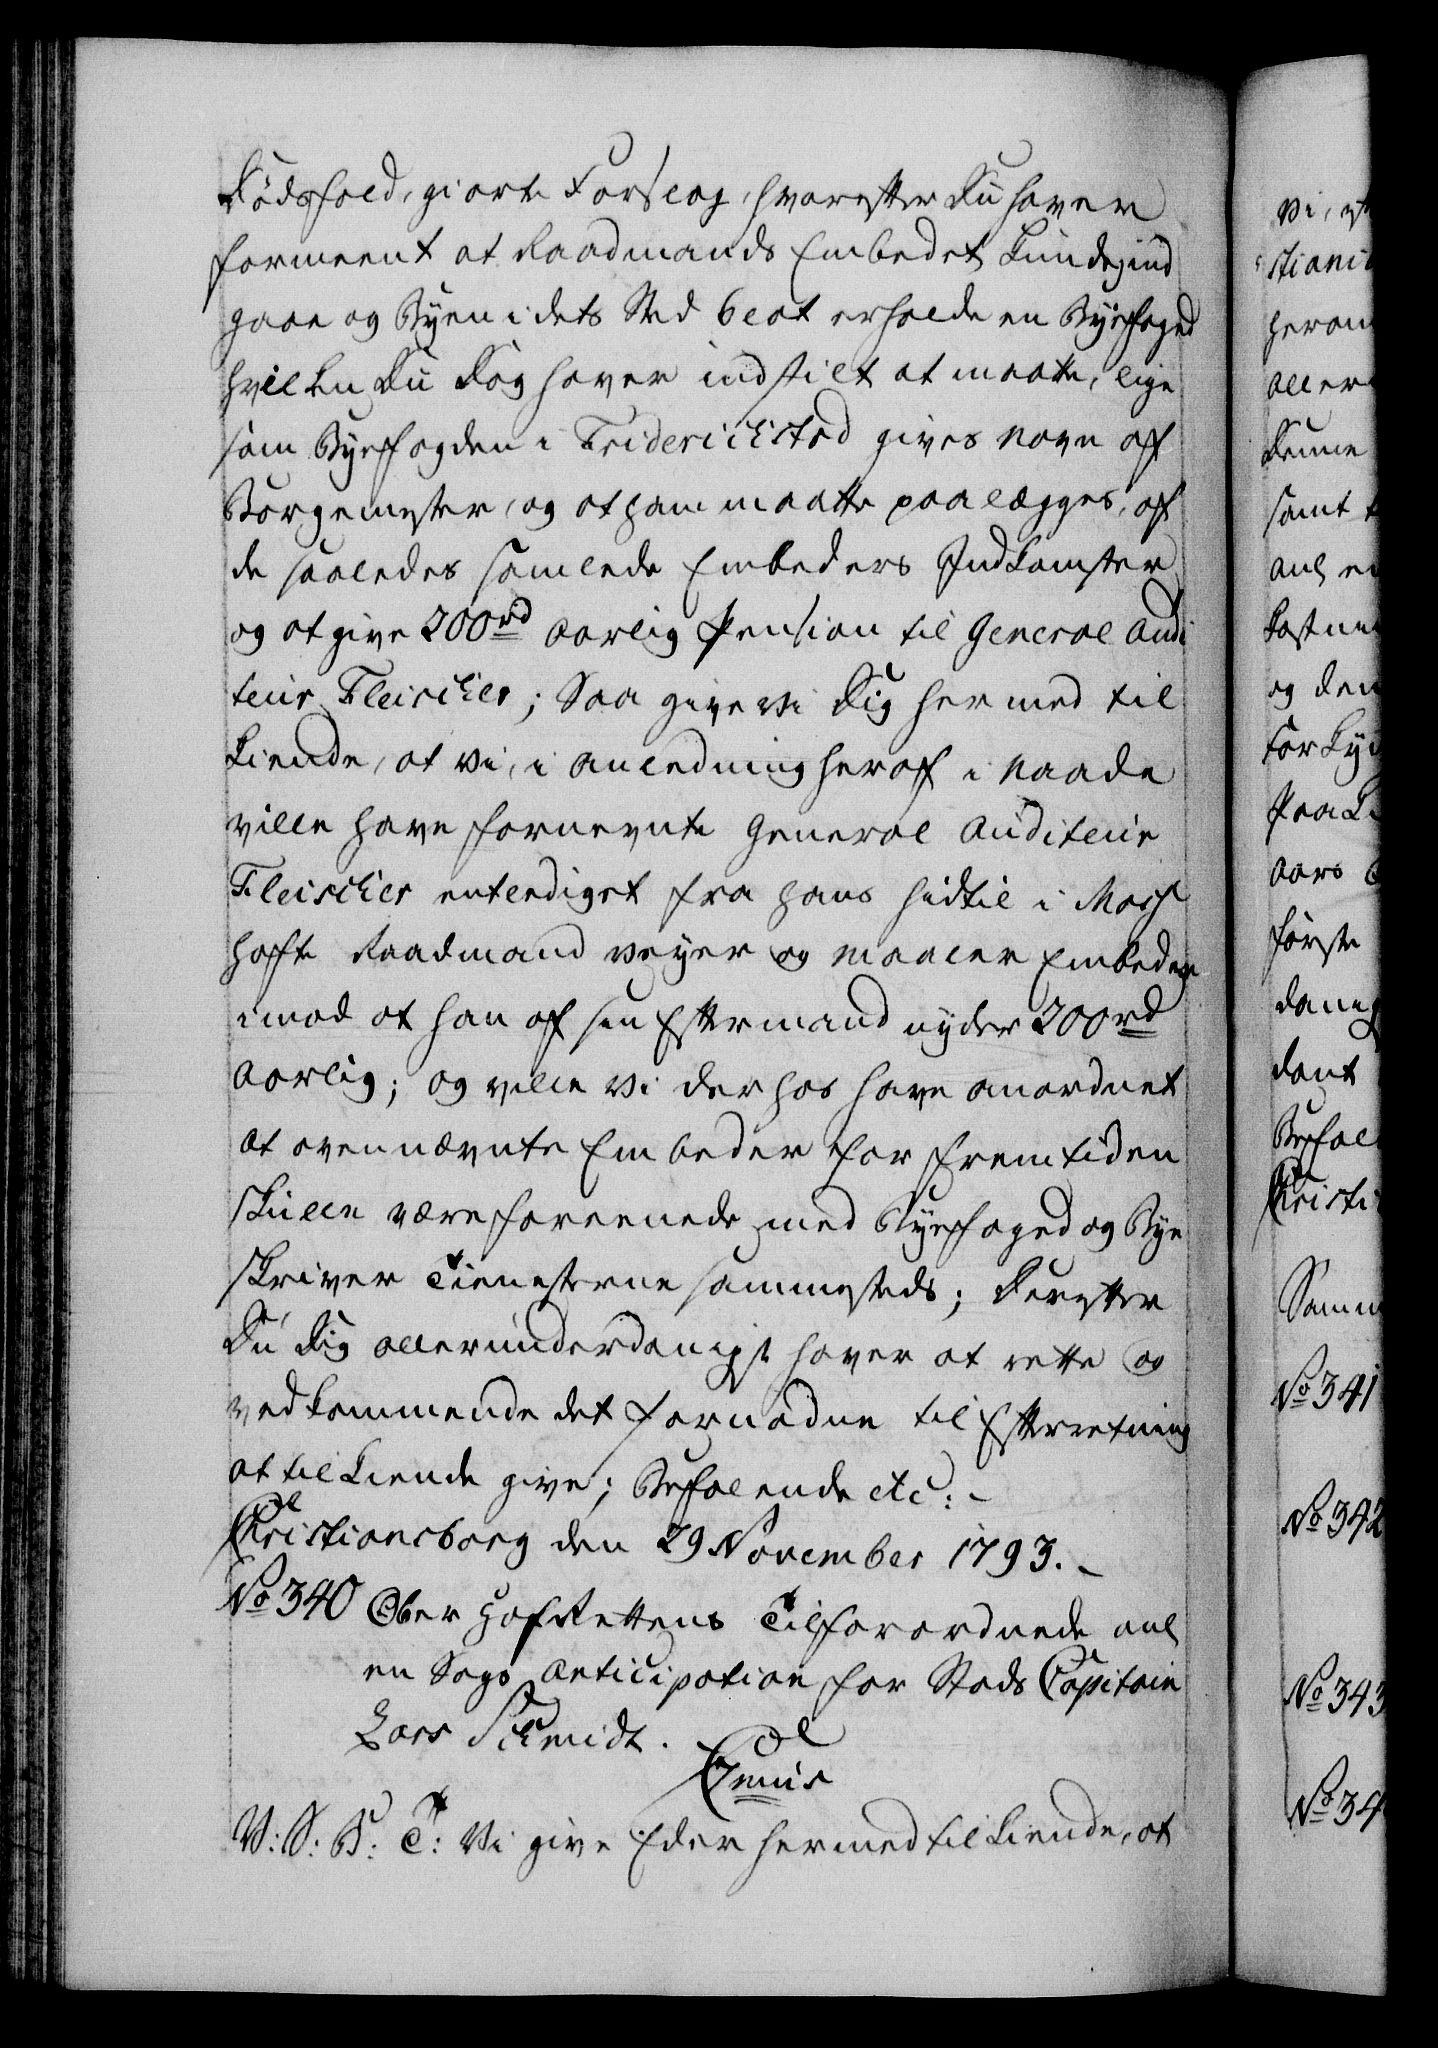 Dødsfald, giorte Forslag, hvorefter Du haver
formeent at Raadmands Embedet kunde ind
gaae og Byen i dets Sted blot erholde en Byefoged
hvilken Du dog haver indstilt at maatte, lige
som Byefogden i Friderichstad gives Navn af
Borgemester, og at ham maatte paalægges, af
de saaledes samlede Embeders Indkomster
og at give 200 rd aarlig Pension til General Audi
teur Fleischer; Saa give Vi Dig hermed til
kiende, at Vi, i Anledning heraf i Naade
ville have fornevnte General Auditeur
Fleischer entlediget fra hans hidtil i Moss
hafte Raadmand Veyer og Maaler Embeder
imod at han af sin Eftermand nyder 200 rd
aarlig; og ville Vi derhos have anordnet
at ovennævnte Embeder for Fremtiden
skulle være foreenede med Byefoged og Bye
skriver Tienesterne sammesteds; Derefter
Du Dig allerunderdanigst haver at rette og
vedkommende det fornødne til Efterretning
at tilkiende give; Befalende etc: -
Christiansborg den 29 November 1793. -
No 340 Ober Hof Rettens Tilforordnede anl
en Sags Anticipation for Stads Capitain
Lars Schmidt.
V: S: B: T: Vi give Eder hermed tilkiende, at
Vi, 
stiani
heram
aller
denne
samt
anl
kostne
og den
forky
Paa
Aars
første
dant
Befal
Christi
Samm
No 341
No 342
No 343
No 34